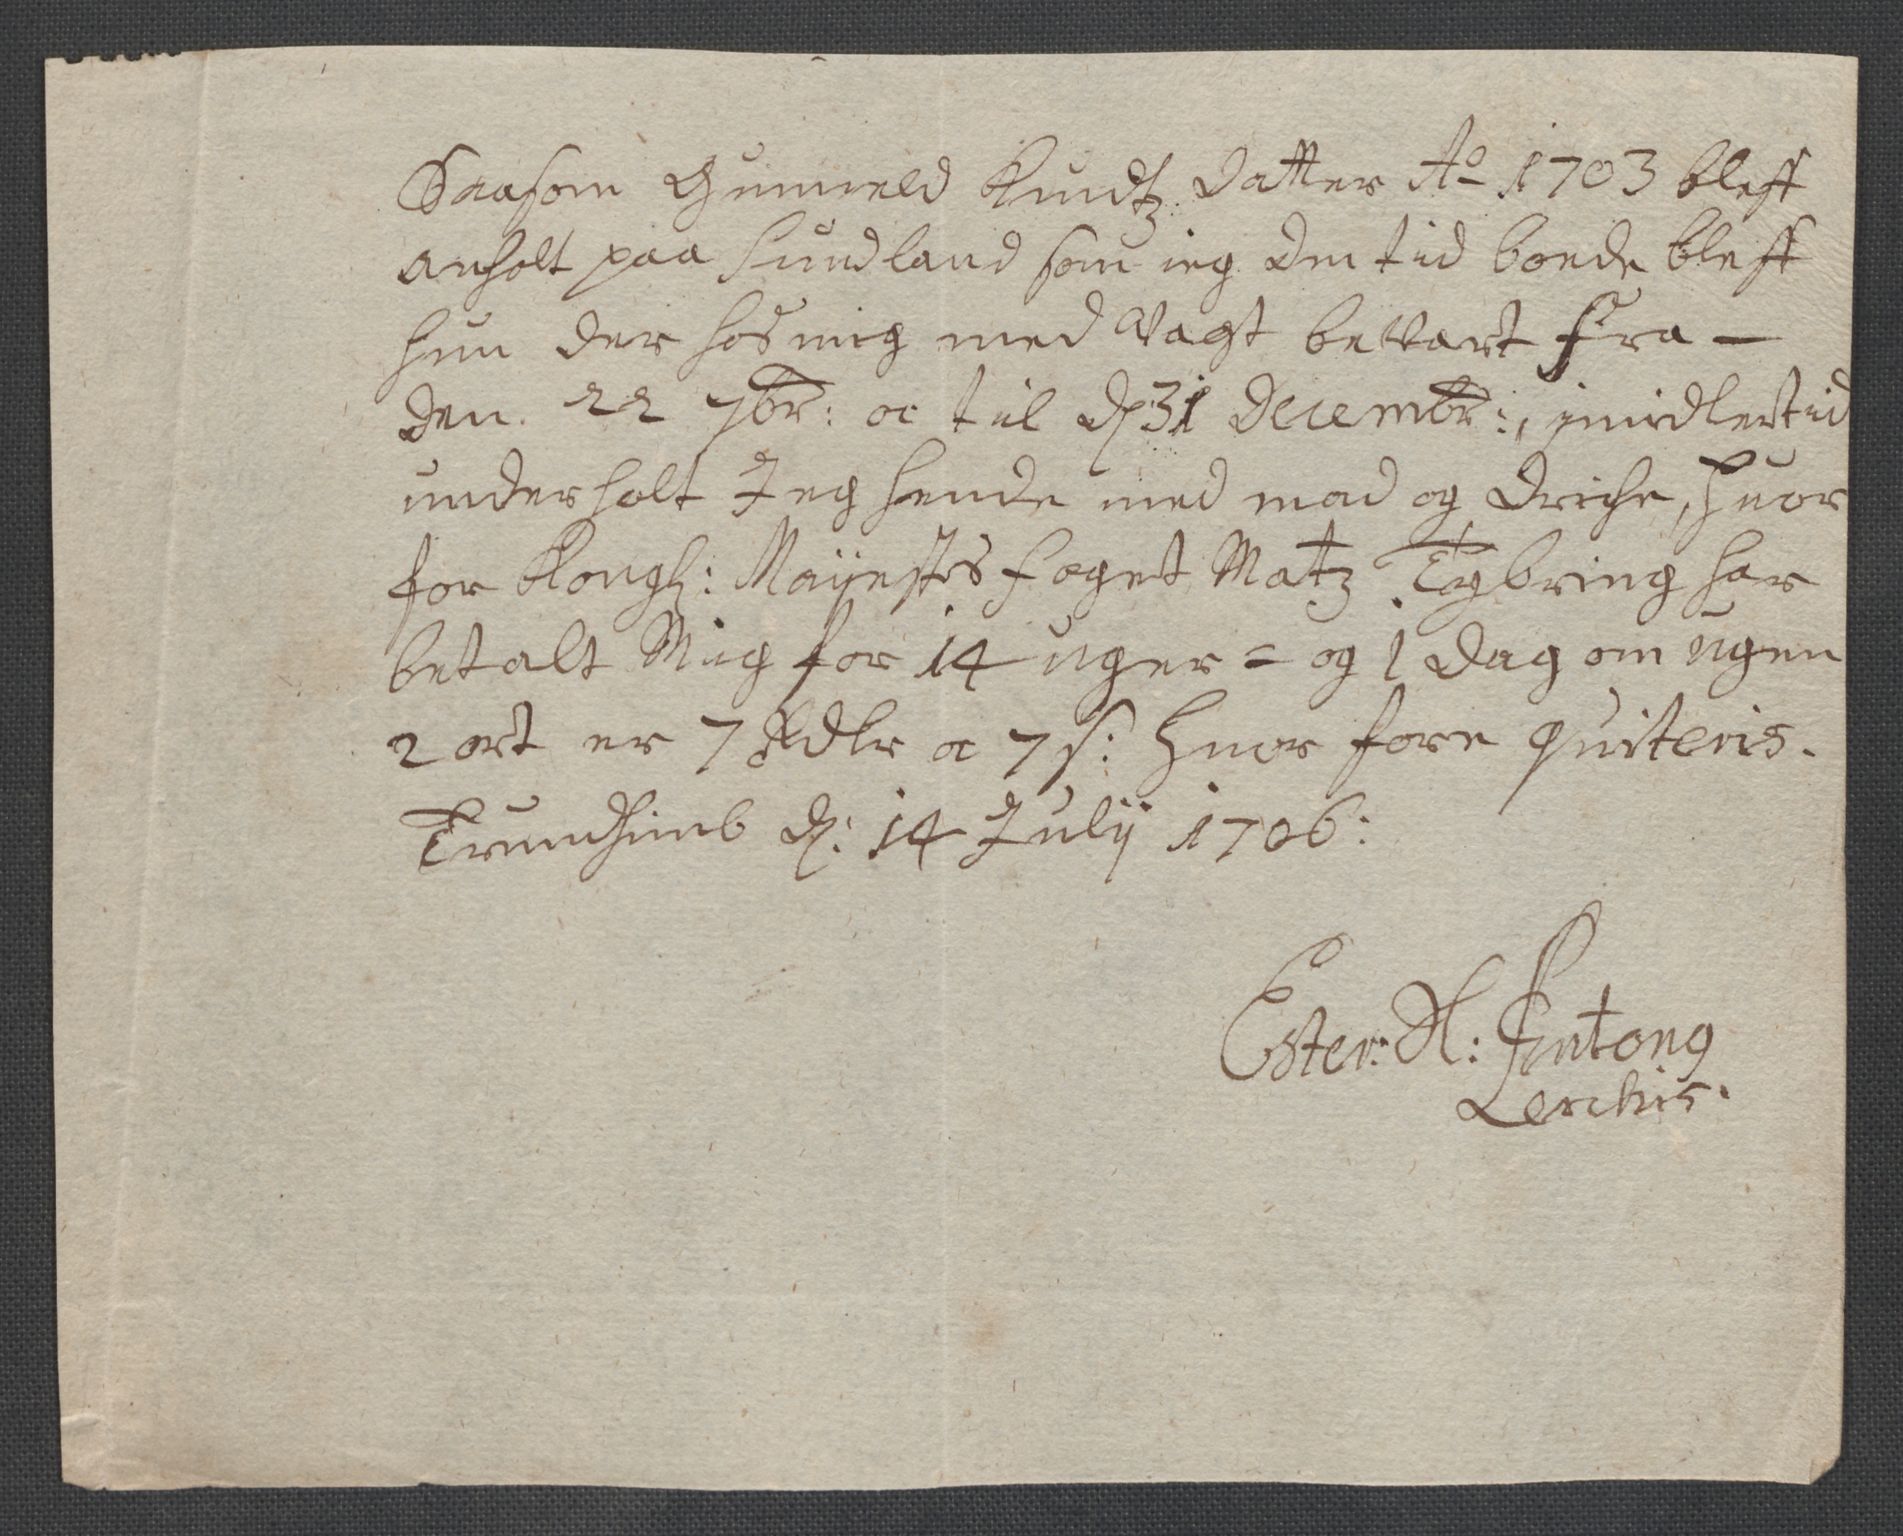 Saasom Gunneld Knudtz Datter Ao 1703 bleff
anholt paa Sundland som ieg den tid boede bleff
hun der hos mig med Vagt bevart fra —
den. 22 7br: oc til dh 31 Decembr:, imidlertid
underholt Jeg hende med mad og driche, huor
for Kongh: Mayiestes foget Matz Egbring har
betalt Mig for 14 uger = og 1 dag om ugen
2 ort er 7 Rdlr oc 7 s: huor fore quiteris.
Trundhimb dh: 14 Julij 1706:
Ester: Sl: Antong
Lerchis.